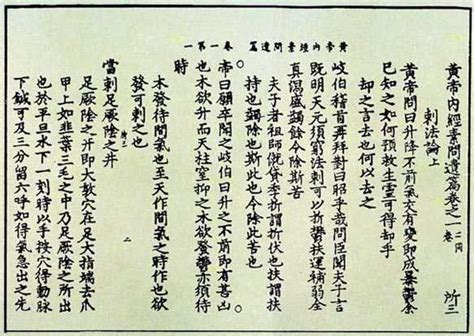 黃帝內經素問遺篇 卷一第一
黃帝內經素問遺篇卷之一 二同卷 所三
刺法論上
黃帝問曰升降不前氣交有變即成暴鬱余
已知之如何預救生靈可得却乎
却之言去也何以去之
岐伯稽首再拜對曰昭乎哉問臣聞夫子言
既明天元須窮法刺可以折鬱扶運補弱全
真瀉盛蠲餘令除斯苦
夫子者祖師僦貸季折謂折伏也扶謂扶
持也蠲除也斯此也令除此苦也
帝曰願卒聞之岐伯曰升之不前即有甚凶
也木欲升而天柱窒抑之木欲發鬱亦須待
時
木發待間氣也至天作間氣之時作也欲
發可刺之也
二
當刺足厥陰之井
足厥陰之井即大敦穴在足大指端去爪
甲上如韭葉三毛之中乃足厥陰之所出
也於平旦水下一刻時以手按穴得動脉
下鍼可及三分留六呼如得氣急出之先